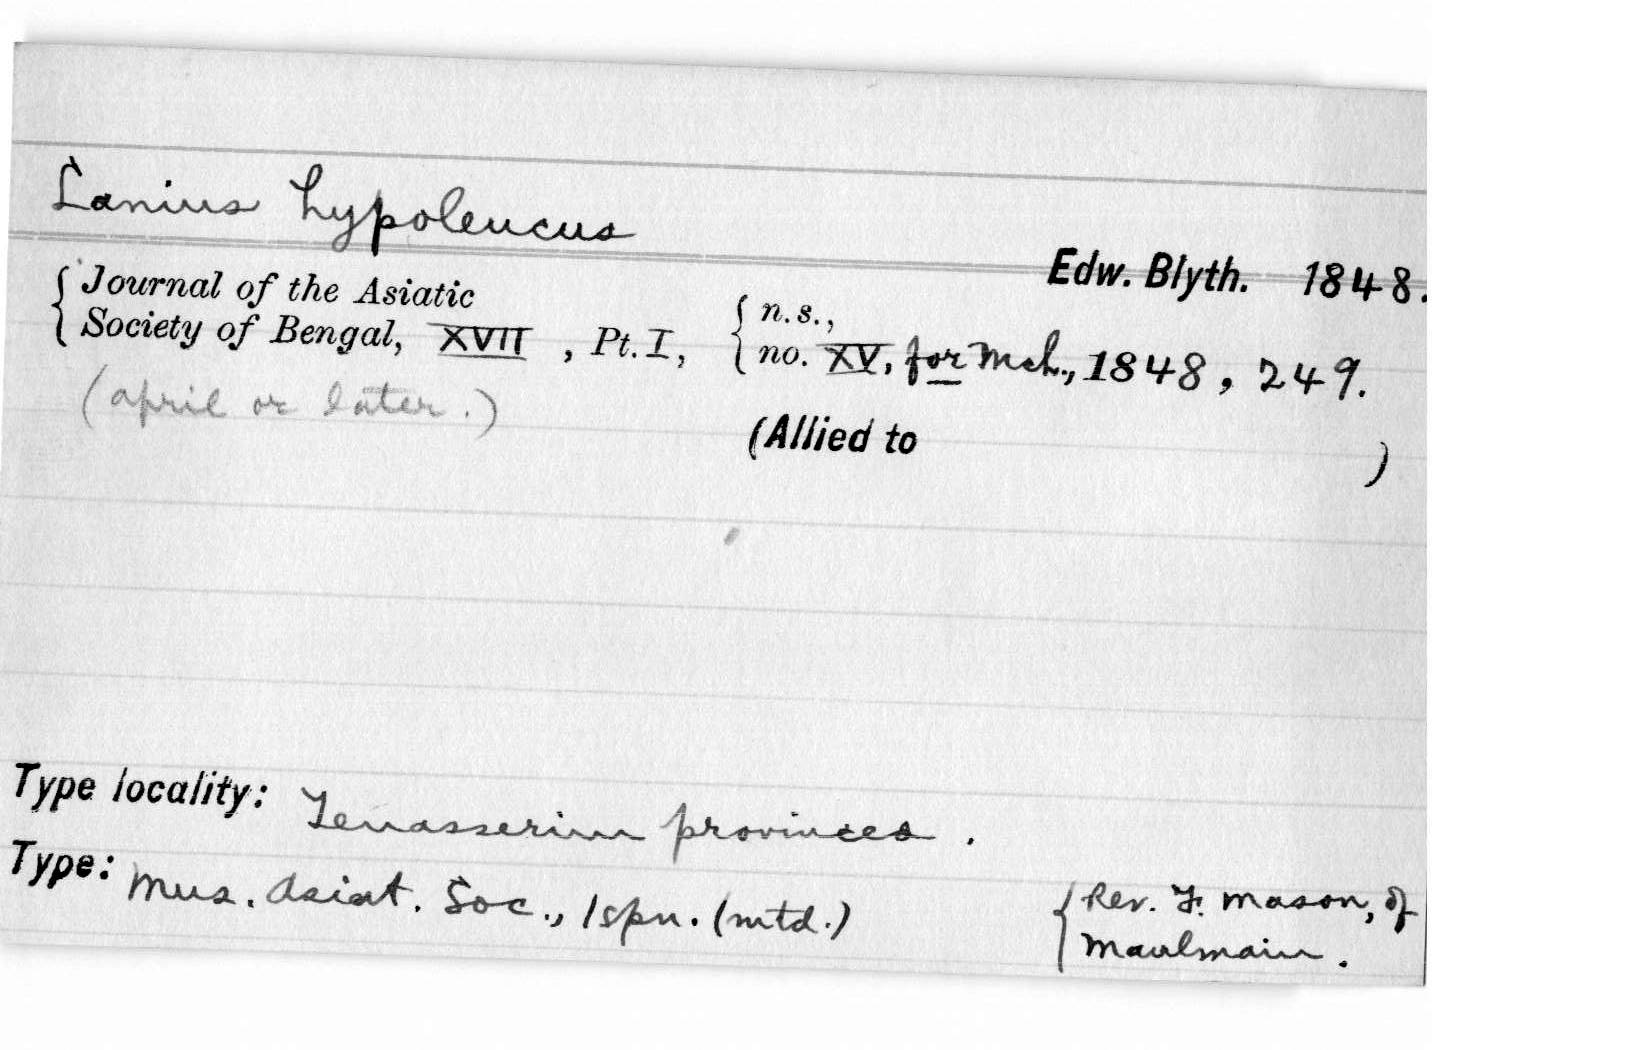 Lanius hypoleucus
Edw. Blyth. 1848.
{ Journal of the Asiatic
Society of Bengal, XVII , Pt. I, { n.s.,
no. XV, for Mch., 1848, 249.
(april or later.)
(Allied to )
Type locality: Tenasserim provinces .
Type: Mus. Asiat. Soc., 1 spn. (mtd.) { Rev. F. Mason, of
Maulmain .